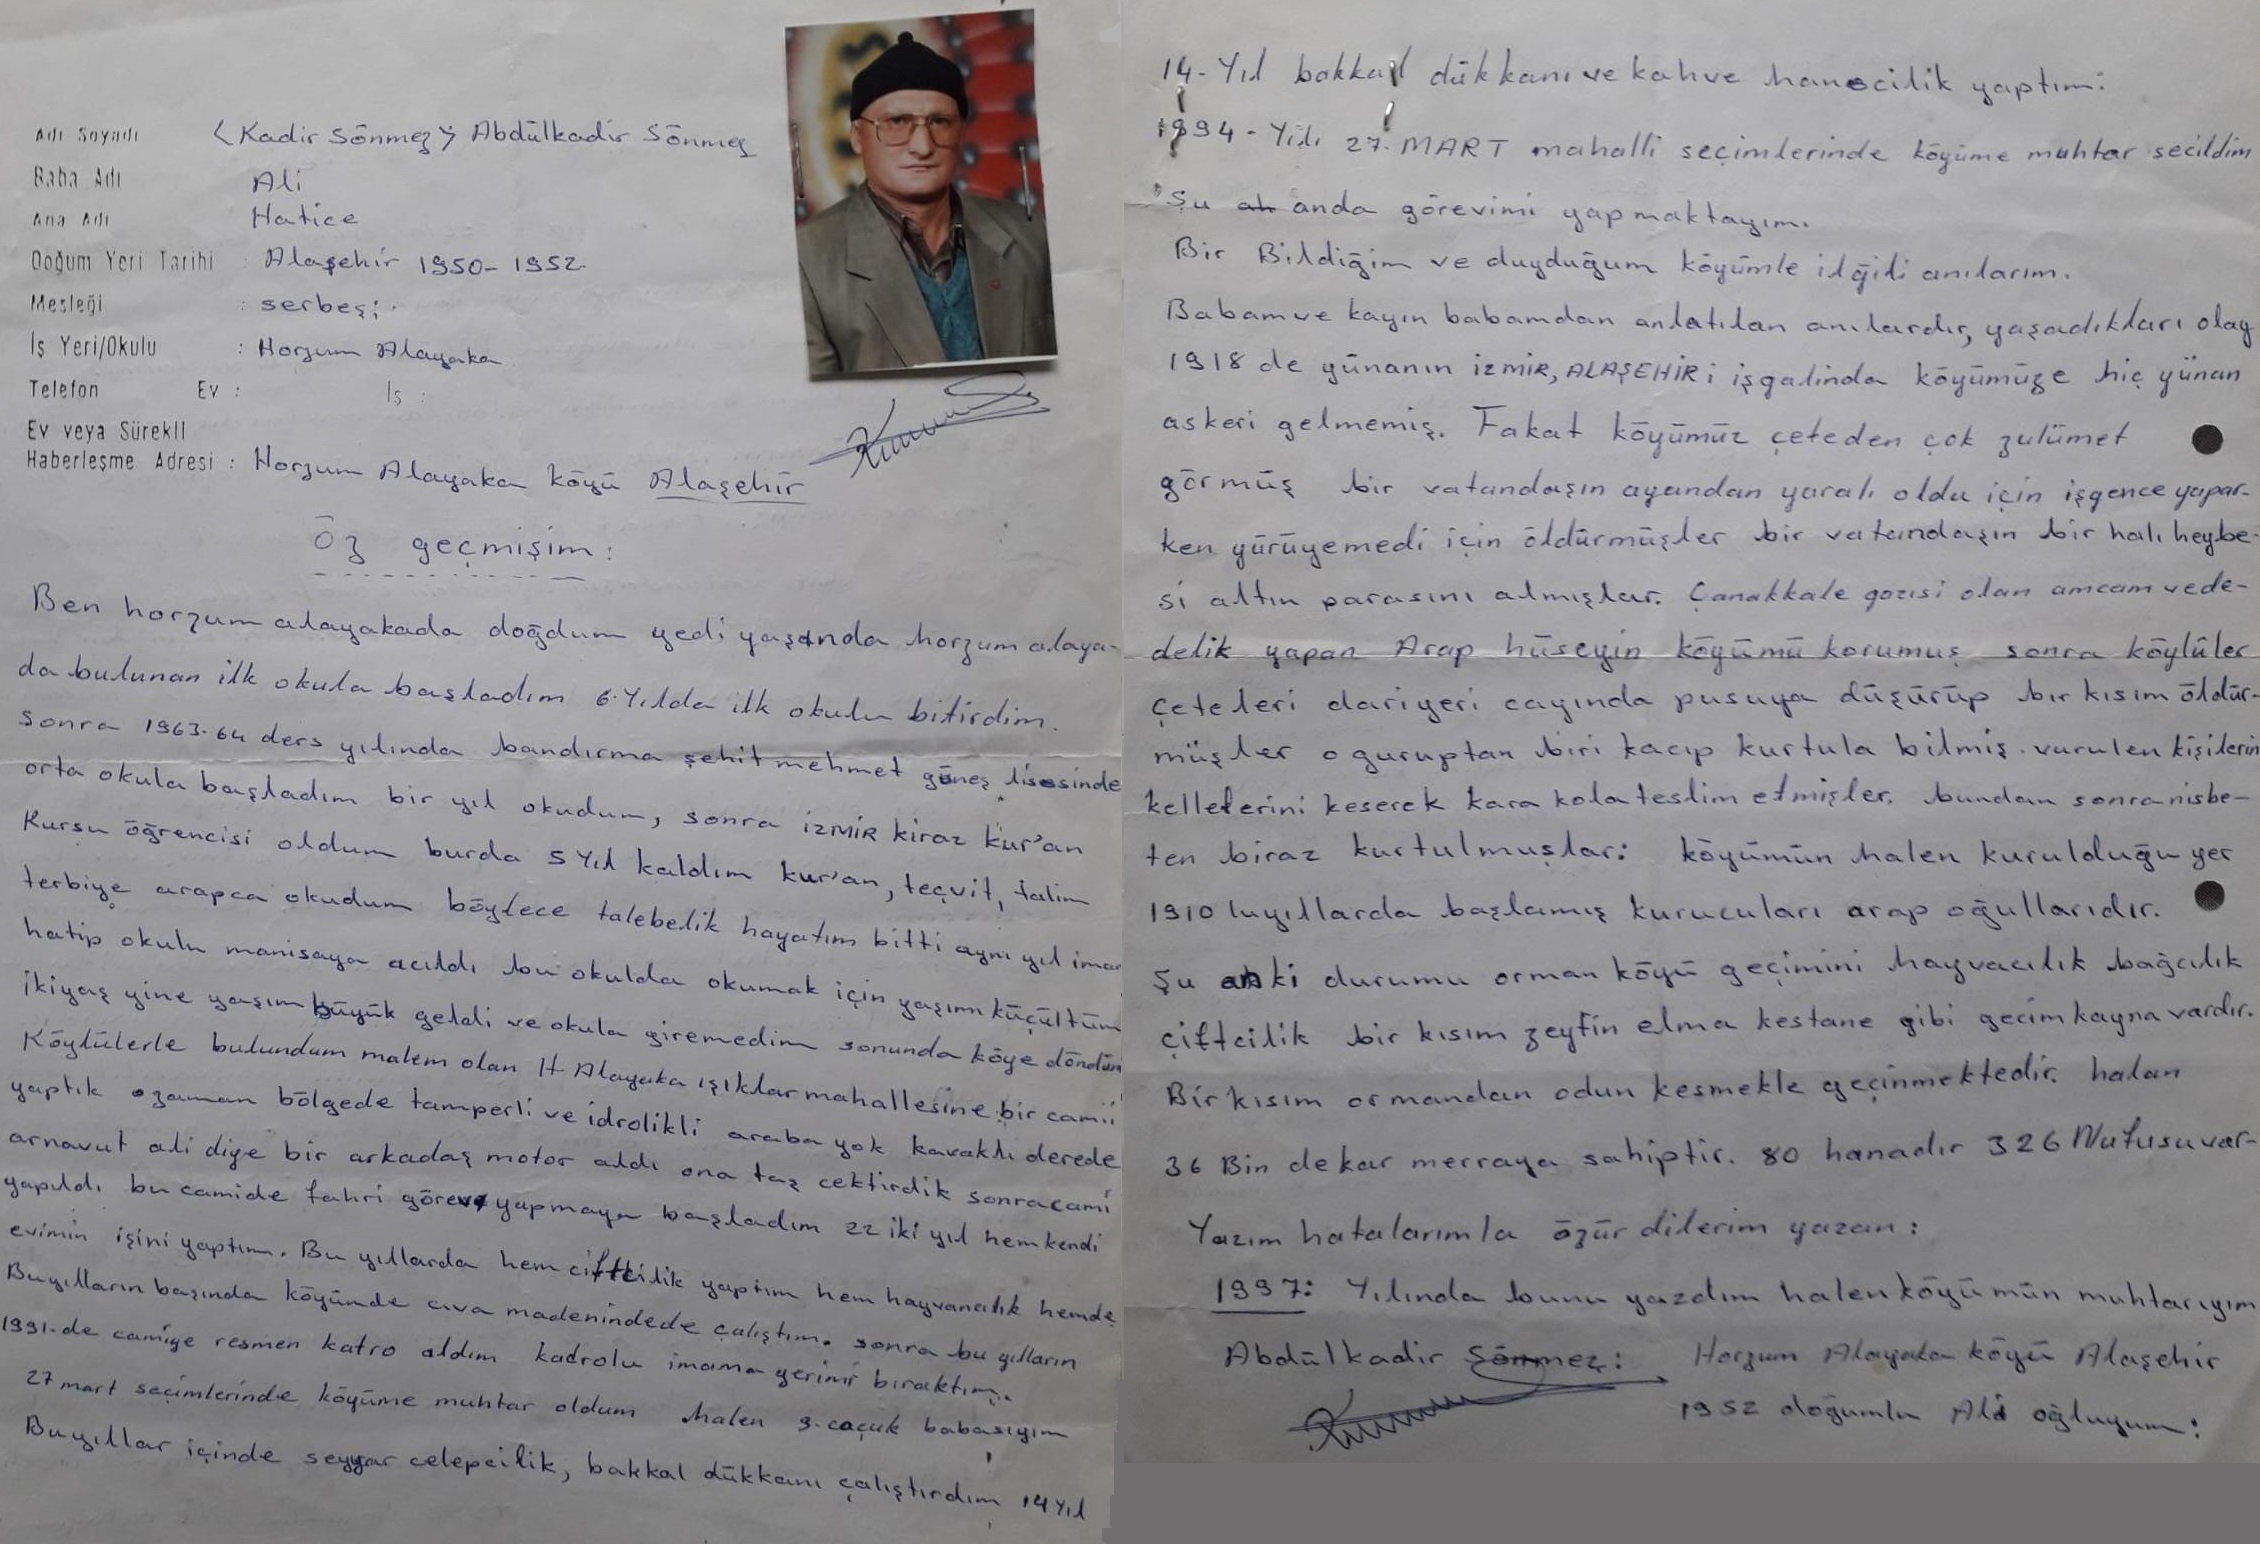 Adı Soyadı < Kadir Sönmez > Abdülkadir Sönmez
Baba Adı Ali
Ana Adı Hatice
Doğum Yeri Tarihi : Alaşehir 1950-1952
Mesleği : serbeş;
İş Yeri/Okulu : Horzum Alayaka
Telefon Ev : İş :
Ev veya Sürekli
Haberleşme Adresi : Horzum Alayaka köyü Alaşehir
Öz geçmişim:
Ben horzum alayakada doğdum yedi yaşında horzum alaya-
da bulunan ilk okula başladım 6.Yılda ilk okulu bitirdim.
sonra 1963-64 ders yılında bandırma şehit mehmet güneş lisesinde
orta okula başladım bir yıl okudum, sonra İZMİR kiraz kur'an
kursu öğrencisi oldum burda 5 Yıl kaldım kur'an, teçvit, talim
terbiye arapca okudum böylece talebelik hayatım bitti aynı yıl imam
hatip okulu manisaya acıldı bu okulda okumak için yaşımı küçültüm
ikiyaş yine yaşım büyük geldi ve okula giremedim sonunda köye döndüm
Köylülerle bulundum malem olan H Alayaka ışıklar mahallesine bir camii
yaptık ozaman bölgede tamperli ve idrolikli araba yok kavaklı derede
arnavut ali diye bir arkadaş motor aldı ona taş cektirdik sonra cami
yapıldı bu camide fahri görev yapmaya başladım 22 iki yıl hem kendi
evimin işini yaptım. Bu yıllarda hem ciftcilik yaptım hem hayvancılık hemde
Buyılların başında köyümde cıva madenindede çalıştım. sonra bu yılların
1991-de camiye resmen katro aldım kadrolu imama yerimi bıraktım.
27 mart seçimlerinde köyüme muhtar oldum halen 3.coçuk babasıyım
Buyıllar içinde seyyar celepcilik, bakkal dükkanı çalıştırdım 14 Yıl
14- Yıl bakkal dükkanı ve kahve hanecilik yaptım:
1994- Yılı 27.MART mahalli seçimlerinde köyüme muhtar secildim
Şu an anda görevimi yapmaktayım.
Bir Bildiğim ve duyduğum köyümle ilğili anılarım.
Babam ve kayın babamdan anlatılan anılardır, yaşadıkları olay
1918 de yünanın İZMİR, ALAŞEHİR i işgalinda köyümüze hiç yünan
askeri gelmemiş. Fakat köyümüz çeteden çok zulümet
görmüş bir vatandaşın ayandan yaralı oldu için işgence yapar-
ken yürüyemedi için öldürmüşler bir vatandaşın bir halı heybe-
si altın parasını almışlar. Çanakkale gazisi olan amcam vede-
delik yapan Arap hüseyin köyümü korumuş sonra köylüler
çeteleri dariyeri cayında pusuya düşürüp bir kısım öldür-
müşler o guruptan biri kacıp kurtula bilmiş. vurulen kişilerin
kellelerini keserek kara kola teslim etmişler. bundan sonra nisbe-
ten biraz kurtulmuşlar: köyümün halen kurulduğu yer
1910 luyıllarda başlamış kurucuları arap oğullarıdır.
Şu anki durumu orman köyü geçimini hayvacılık bağcılık
çiftcilik bir kısım zeytin elma kestane gibi gecim kayna vardır.
Bir kısım ormandan odun kesmekle geçinmektedir. halan
36 Bin dekar merraya sahiptir. 80 hanadır 326 Nufusu var-
Yazım hatalarımla özür dilerim yazan:
1997: Yılında bunu yazdım halen köyümün muhtarıyım
Abdülkadir Sönmez: Horzum Alayaka köyü Alaşehir
1952 doğumlu Ali oğluyum: